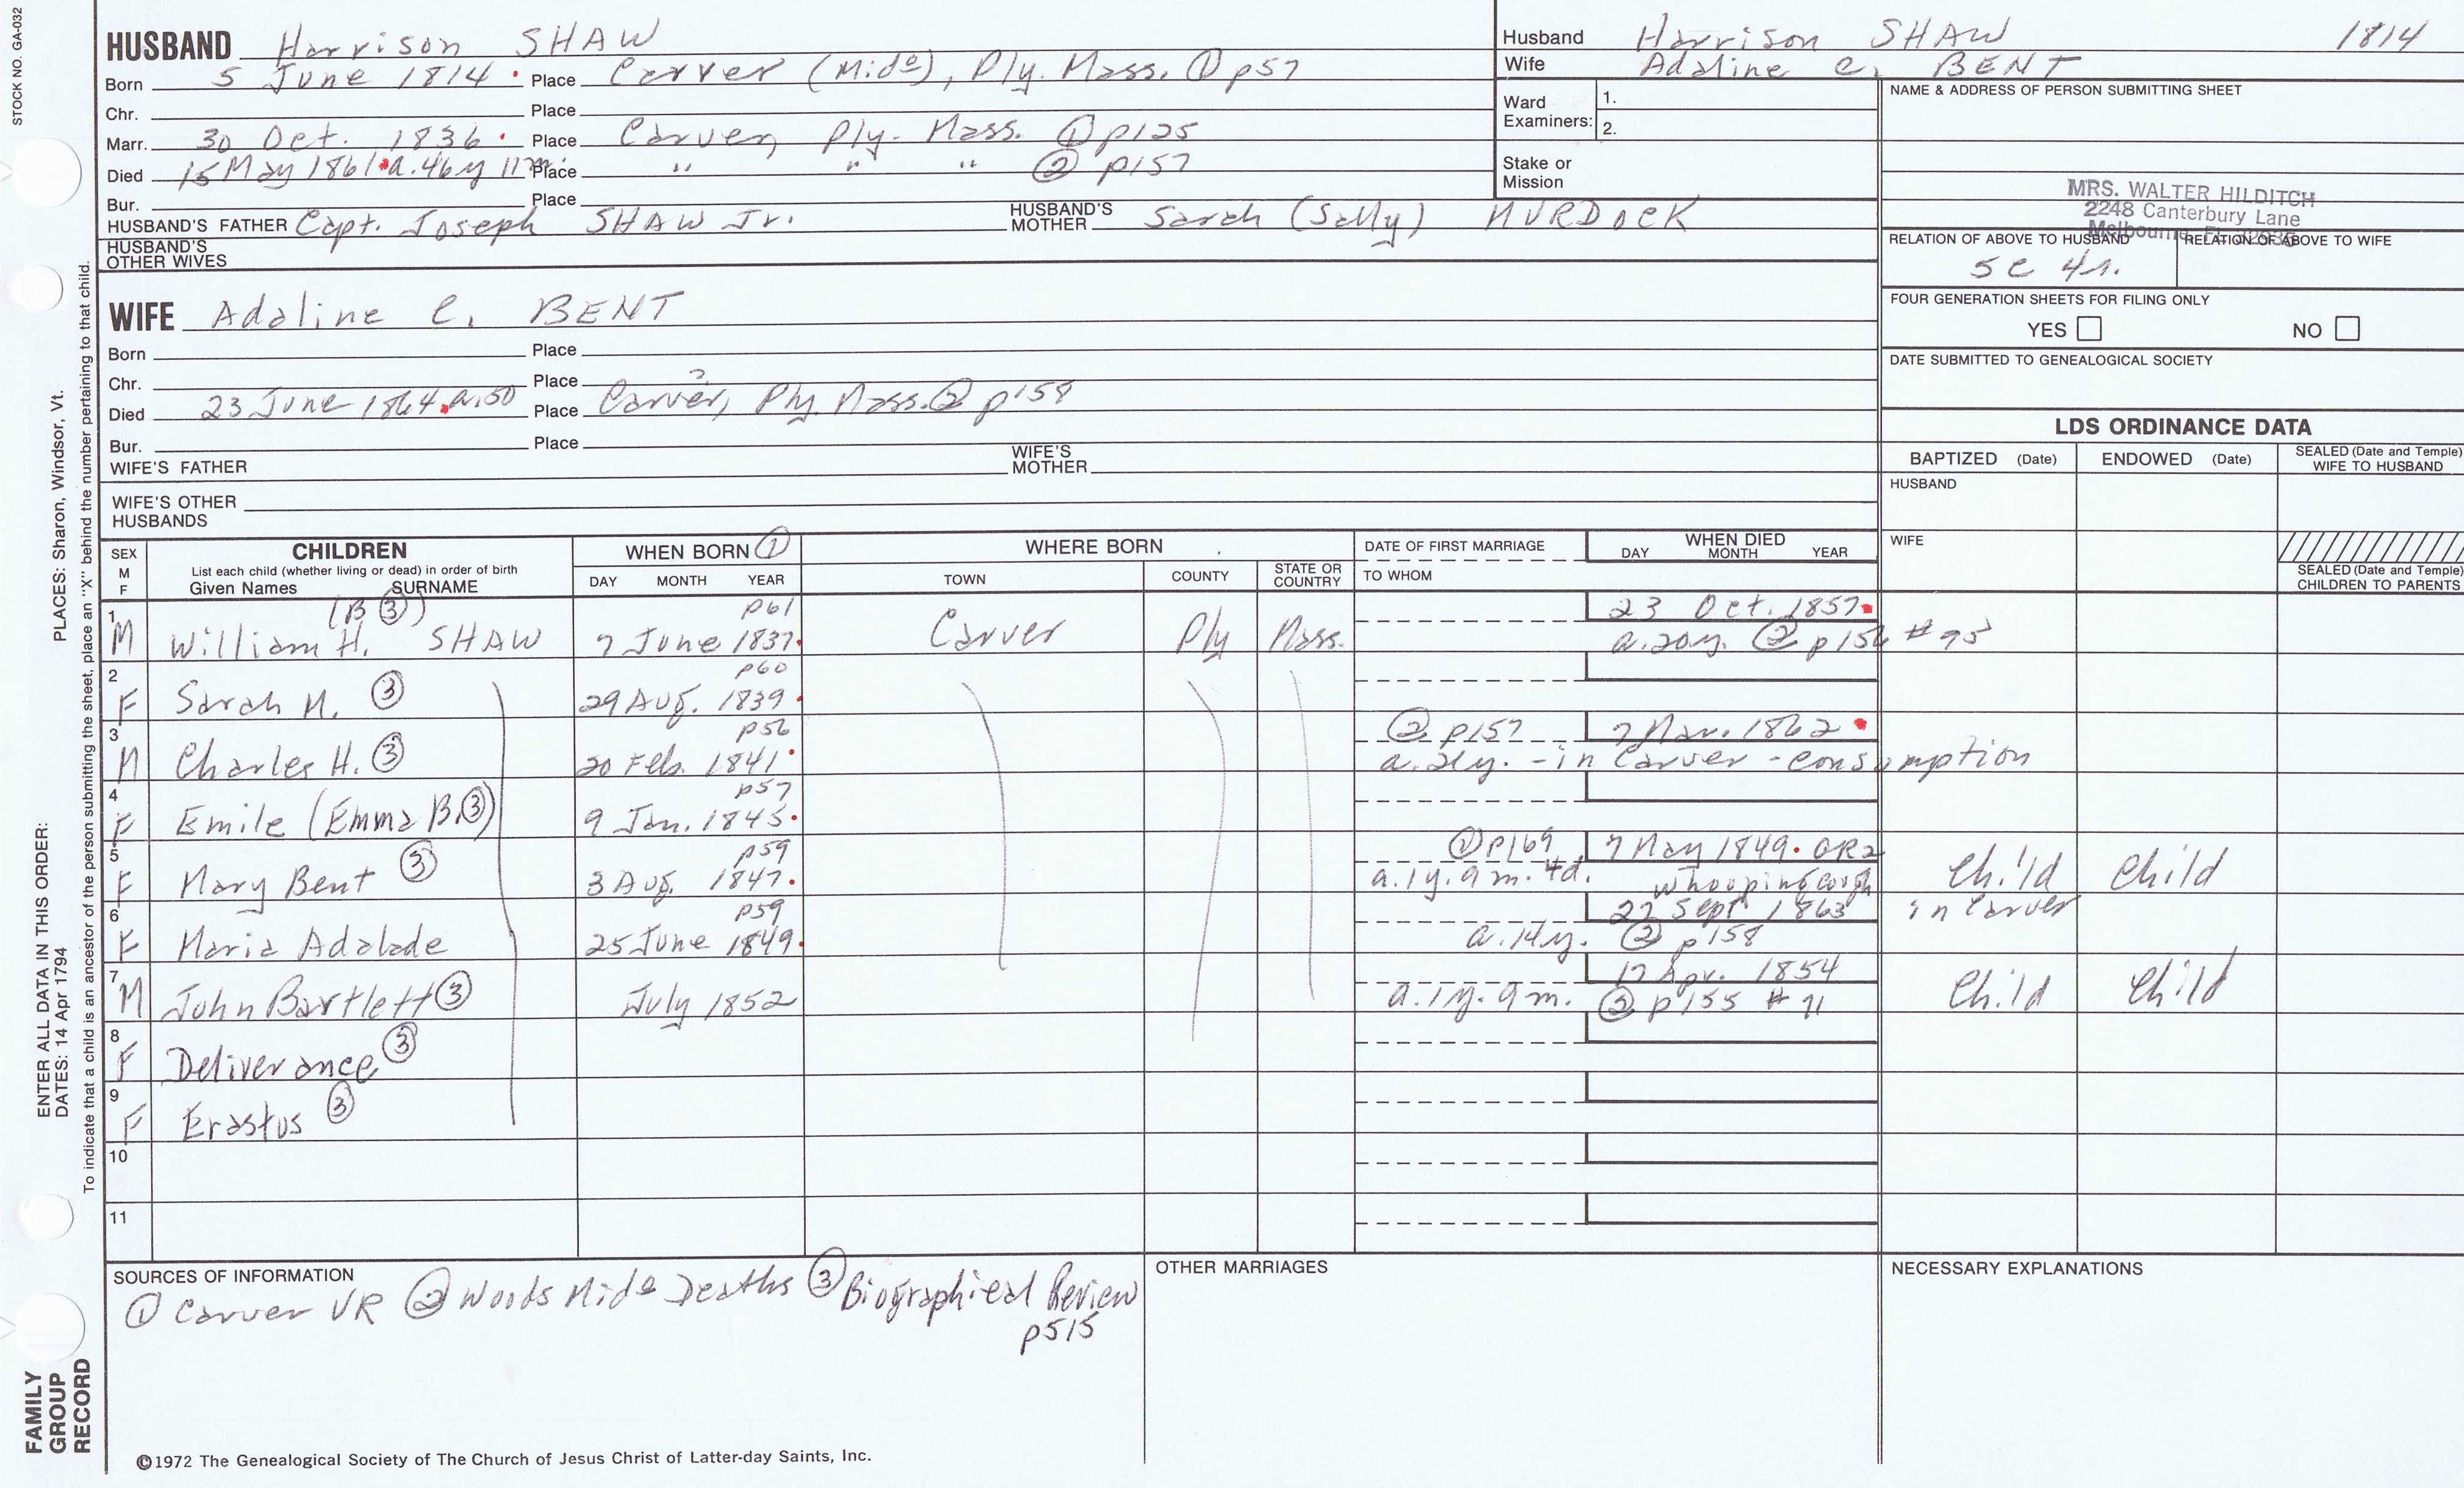 STOCK NO. GA-032
HUSBAND Harrison SHAW
Born 5 June 1814 Place Carver (Mido), Ply. Mass. ① p57
Chr. Place
Marr. 30 Oct. 1836 Place Carver, Ply. Mass. ① p125
Died 15 May 1861 a. 46y 11m. Place " " " ② p157
Bur. Place
HUSBAND'S FATHER Capt. Joseph SHAW Jr. HUSBAND'S MOTHER Sarah (Sally) MURDOCK
HUSBAND'S OTHER WIVES
Husband Harrison SHAW 1814
Wife Adaline C. BENT
Ward Examiners: 1.
2.
Stake or Mission
NAME & ADDRESS OF PERSON SUBMITTING SHEET
MRS. WALTER HILDITCH
2248 Canterbury Lane
Melbourne, FL
RELATION OF ABOVE TO HUSBAND RELATION OF ABOVE TO WIFE
5c 4r.
FOUR GENERATION SHEETS FOR FILING ONLY
YES NO
DATE SUBMITTED TO GENEALOGICAL SOCIETY
WIFE Adaline C. BENT
Born Place
Chr. Place
Died 23 June 1864 a. 50 Place Carver?, Ply. Mass. ② p158
Bur. Place
WIFE'S FATHER WIFE'S MOTHER
WIFE'S OTHER HUSBANDS
LDS ORDINANCE DATA
BAPTIZED (Date) ENDOWED (Date) SEALED (Date and Temple) WIFE TO HUSBAND
HUSBAND
WIFE
SEALED (Date and Temple) CHILDREN TO PARENTS
SEX M F CHILDREN WHEN BORN ① WHERE BORN DATE OF FIRST MARRIAGE WHEN DIED
List each child (whether living or dead) in order of birth
Given Names SURNAME DAY MONTH YEAR TOWN COUNTY STATE OR COUNTRY TO WHOM DAY MONTH YEAR
1 (B ③) p61 23 Oct. 1857
M William H. SHAW 7 June 1837 Carver Ply Mass. a. 20y. ② p156 # 95
2 p60
F Sarah M. ③ 29 Aug. 1839
3 p56 ② p157 7 Mar. 1862
M Charles H. ③ 20 Feb. 1841 a. 21y. - in Carver - consumption
4 p57
F Emile (Emma B. ③) 9 Jan. 1845
5 p59 ① p169 7 May 1849 GR2
F Mary Bent ③ 3 Aug. 1847 a. 1y. 9m. 4d. whooping cough Child Child
in Carver
6 p59 27 Sept 1863
F Maria Adalade 25 June 1849 a. 14y. ② p158
7 17 Apr. 1854
M John Bartlett ③ July 1852 a. 1y. 9m. ② p155 # 71 Child Child
8
F Deliverance ③
9
F Erastus ③
10
11
SOURCES OF INFORMATION
① Carver VR ② Woods Mido Deaths ③ Biographical Review
p515
OTHER MARRIAGES
NECESSARY EXPLANATIONS
©1972 The Genealogical Society of The Church of Jesus Christ of Latter-day Saints, Inc.
FAMILY GROUP RECORD
ENTER ALL DATA IN THIS ORDER:
DATES: 14 Apr 1794
PLACES: Sharon, Windsor, Vt.
To indicate that a child is an ancestor of the person submitting the sheet, place an "X" behind the number pertaining to that child.